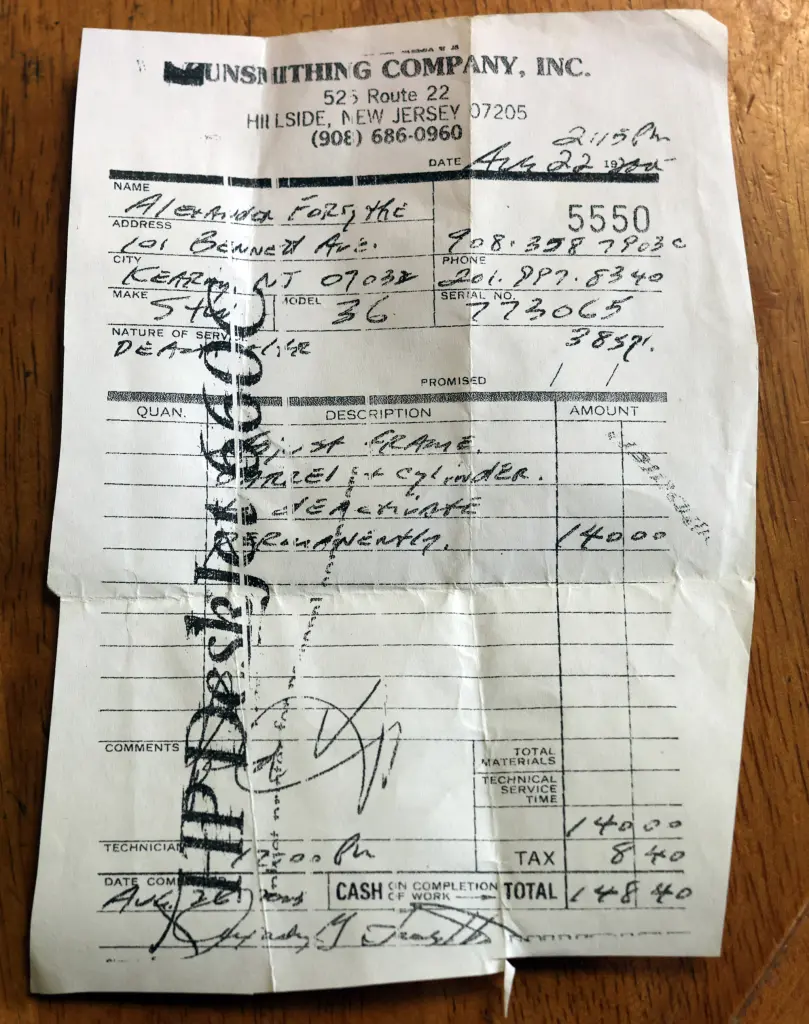 UNSMITHING COMPANY, INC.
525 Route 22
HILLSIDE, NEW JERSEY 07205
(908) 686-0960
2:15 Pm
DATE Aug 22 19
NAME
Alexander Forsythe
5550
ADDRESS
101 Bennett Ave. 908.358 7903 c
CITY PHONE
Kearny, NJ 07032 201.997.8340
MAKE MODEL SERIAL NO.
36 773065
NATURE OF SERV
38spl.
PROMISED / /
QUAN. DESCRIPTION AMOUNT
FRAME.
BARREL + cylinder.
deactivate
PERMANENTLY. 140 00
HP DeskJet 660C
COMMENTS
TOTAL MATERIALS
TECHNICAL SERVICE TIME
140 00
TECHNICIAN 12:00 Pm
TAX 8 40
DATE COM
Aug. 26
CASH ON COMPLETION OF WORK TOTAL 148 40